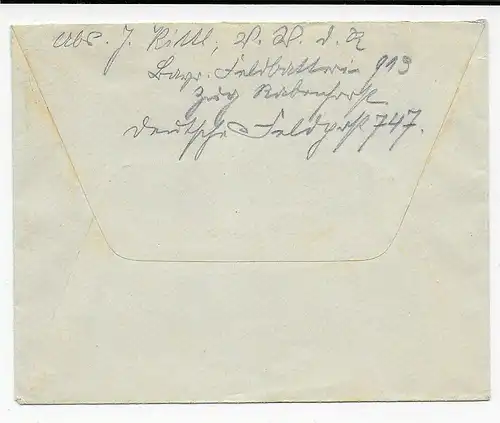 Abs. J. Rittl, V. W. d. R
Bayr. Feldbatterie 913
Zug Rabenhorst
Deutsche Feldpost 747.